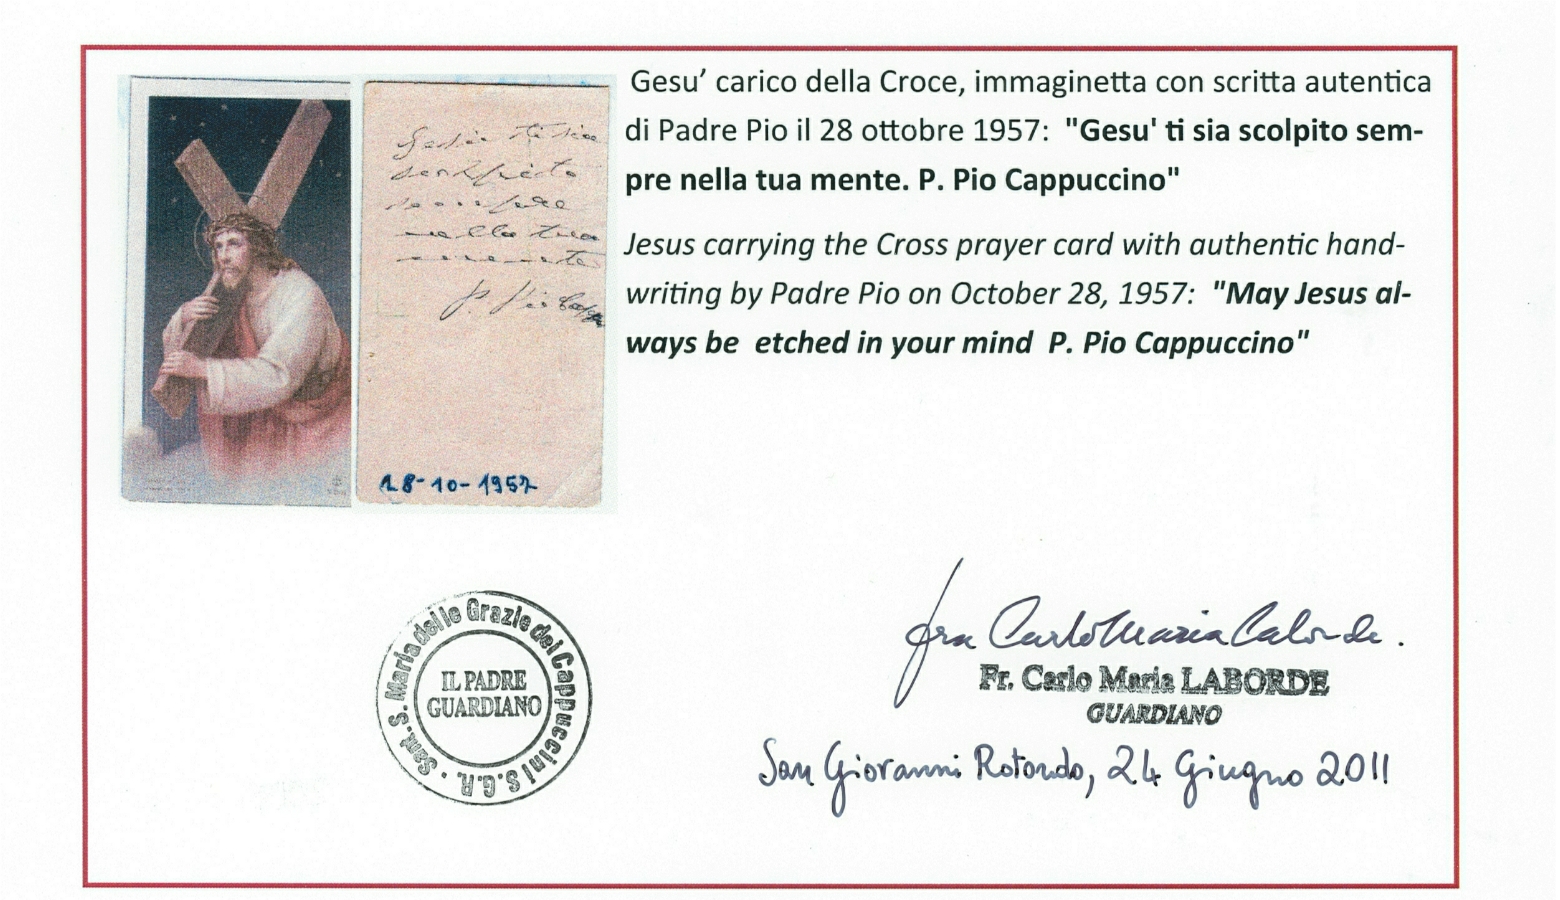 Gesu’ carico della Croce, immaginetta con scritta autentica
di Padre Pio il 28 ottobre 1957: "Gesu' ti sia scolpito sem-
pre nella tua mente. P. Pio Cappuccino"
Jesus carrying the Cross prayer card with authentic hand-
writing by Padre Pio on October 28, 1957: "May Jesus al-
ways be etched in your mind P. Pio Cappuccino"
Gesù ti sia
scolpito
sempre
nella tua
mente
P. Pio Capp
28-10-1957
Sant. S. Maria delle Grazie dei Cappuccini S.G.R.
IL PADRE
GUARDIANO
fra Carlo Maria Laborde.
Fr. Carlo Maria LABORDE
GUARDIANO
San Giovanni Rotondo, 24 Giugno 2011